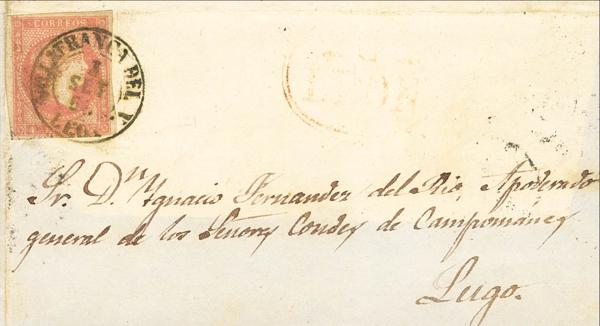 CORREOS
VILLAFRANCA DEL V.
1
SET
LEON
LEON
Sr. Dn. Ygnacio Fernandez del Rio, Apoderado
general de los Señores Condes de Campomanes
Lugo.